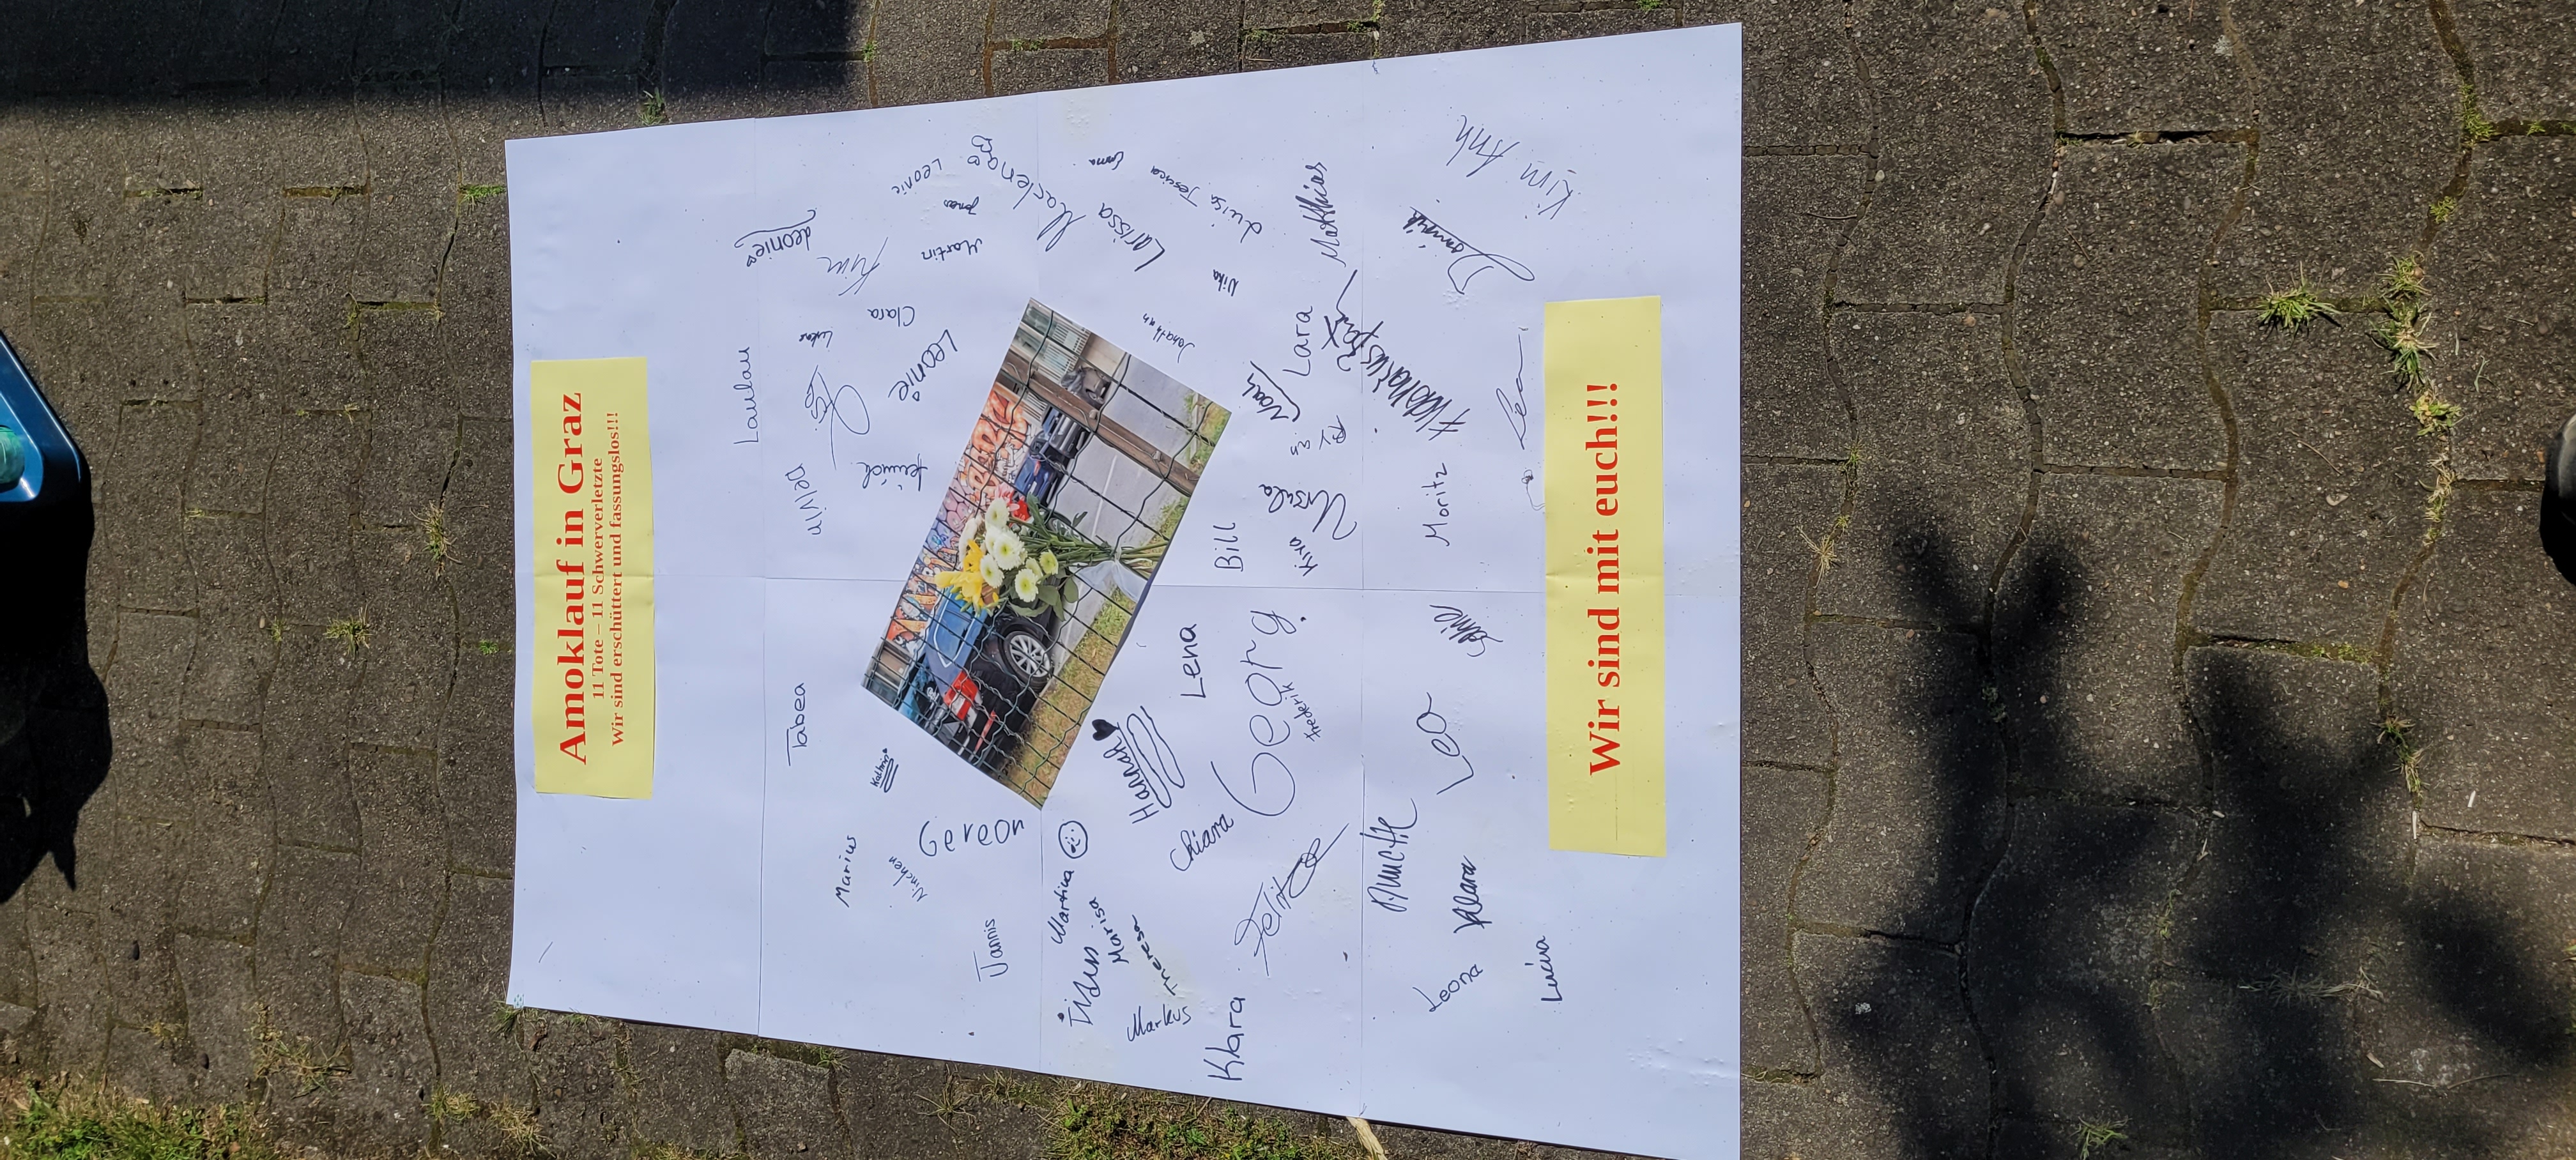 Amoklauf in Graz
11 Tote – 11 Schwerverletzte
Wir sind erschüttert und fassungslos!!!
Laulau
Leonie
Kim
Martin
Jonas
Leonie
Marlena
Larissa
Emma
Jessica
Luisa
Nika
Jonathan
Matthias
Kim Anh
Clara
Lukas
Leonie
Delwin
Lara
Noah
Ryan
Ursula
Kira
Bill
Moritz
Lea
Tabea
Kathrin
Lena
Hannah
Georg
Frederik
Leo
Marius
Ninchen
Gereon
Chiara
Felix
Annette
Klara
Jannis
Martina
Marisa
Theresa
Markus
Klara
Leona
Luisa
Wir sind mit euch!!!